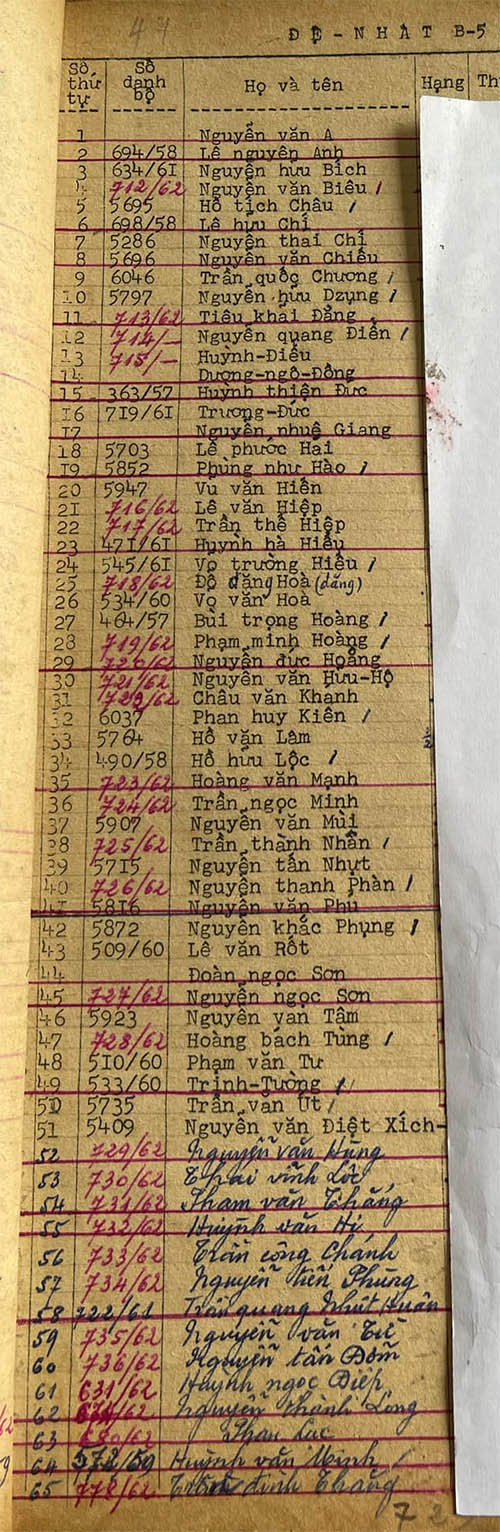 47
ĐỆ-NHẤT B-5
Số thứ tự Số danh bộ Họ và tên Hạng Th
1 Nguyễn văn A
2 694/58 Lê nguyên Anh
3 634/61 Nguyễn hữu Bích
4 712/62 Nguyễn văn Biêu /
5 5695 Hồ tịch Châu /
6 698/58 Lê hữu Chí
7 5286 Nguyễn thai Chi
8 5696 Nguyễn văn Chiếu
9 6046 Trần quốc Chương /
10 5797 Nguyễn hữu Dzụng /
11 713/62 Tiêu khải Đẳng
12 714/- Nguyễn quang Điển /
13 715/- Huỳnh-Điểu
14 Dương-ngô-Đồng
15 363/57 Huỳnh thiện Đức
16 719/61 Trương-Đức
17 Nguyễn nhuệ Giang
18 5703 Lê phước Hai
19 5852 Phùng như Hào /
20 5947 Vu văn Hiền
21 716/62 Lê văn Hiệp
22 717/62 Trần thế Hiệp
23 471/61 Huỳnh hà Hiếu
24 545/61 Vo trường Hiếu /
25 718/62 Đỗ đăng Hoà (đăng)
26 534/60 Vo văn Hoà
27 464/57 Bùi trọng Hoàng /
28 719/62 Phạm minh Hoàng /
29 720/62 Nguyễn đức Hoằng
30 721/62 Nguyễn văn Hưu-Hộ
31 Châu văn Khanh
32 6037 Phan huy Kiên /
33 5764 Hồ văn Lâm
34 490/58 Hồ hữu Lộc /
35 723/62 Hoàng văn Mạnh
36 724/62 Trần ngọc Minh
37 5907 Nguyễn văn Mùi
38 725/62 Trần thành Nhẫn /
39 5715 Nguyễn tấn Nhựt
40 726/62 Nguyễn thanh Phàn /
41 5816 Nguyễn văn Phú
42 5872 Nguyễn khắc Phụng /
43 509/60 Lê văn Rốt
44 Đoàn ngọc Sơn
45 727/62 Nguyễn ngọc Sơn
46 5923 Nguyễn van Tâm
47 728/62 Hoàng bách Tùng /
48 510/60 Phạm văn Tư
49 533/60 Trịnh-Tường /
50 5735 Trần văn Út /
51 5409 Nguyễn văn Điệt Xích-
52 729/62 Nguyễn văn Hùng
53 730/62 Thai vĩnh Lộc
54 731/62 Phạm văn Thắng
55 732/62 Huỳnh văn Hí
56 733/62 Trần công Chánh
57 734/62 Nguyễn tiến Phùng
58 722/61 Trần quang Nhứt Huân
59 735/62 Nguyễn văn Từ
60 736/62 Nguyễn tấn Đởm
61 631/62 Huỳnh ngọc Điệp
62 Nguyễn thành Long
63 Phan Lạc
64 572/59 Huỳnh văn Minh /
65 778/62 đình Thắng